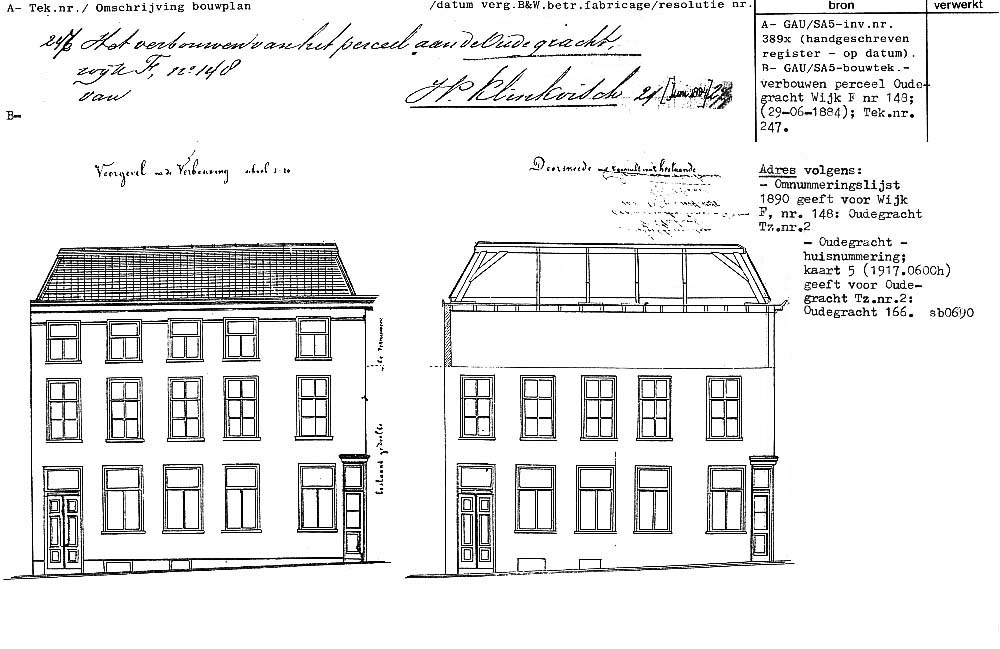 A- Tek.nr./ Omschrijving bouwplan
/datum verg.B&W.betr.fabricage/resolutie nr.
bron
verwerkt
247 Het verbouwen van het perceel aan de Oude gracht,
wijk F, no 148
van
H.P. Klinkvisch 21 [Juni 1884]
B-
A- GAU/SA5-inv.nr.
389x (handgeschreven
register - op datum).
B- GAU/SA5-bouwtek.-
verbouwen perceel Oude-
gracht Wijk F nr 148;
(29-06-1884); Tek.nr.
247.
Voorgevel na de Verbouwing schaal 1:
Doorsneede
bestaande
Adres volgens:
- Omnummeringslijst
1890 geeft voor Wijk
F, nr. 148: Oudegracht
Tz.nr.2
- Oudegracht -
huisnummering;
kaart 5 (1917.060Ch)
geeft voor Oude-
gracht Tz.nr.2:
Oudegracht 166. sb0690
bestaand gedeelte